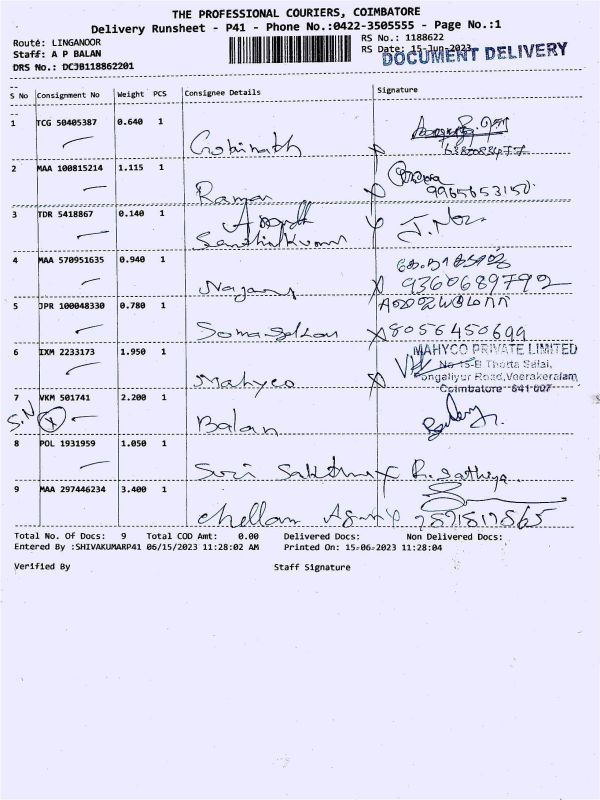 THE PROFESSIONAL COURIERS, COIMBATORE
Delivery Runsheet - P41 - Phone No.:0422-3505555 - Page No.:1
Route: LINGANOOR
RS No.: 1188622
Staff: A P BALAN
RS Date: 15-Jun-2023
DOCUMENT DELIVERY
DRS No.: DCJB118862201
S No Consignment No Weight PCS Consignee Details Signature
1 TCG 50405387 0.640 1
Gobinath
2 MAA 100815214 1.115 1
Raman
9965653150
3 TDR 5418867 0.140 1
Santhiakumar
4 MAA 570951635 0.940 1
9360689792
5 JPR 100048330 0.780 1
8056450699
6 IXM 2233173 1.950 1
Mahyco
MAHYCO PRIVATE LIMITED
No 15-B Thotta Salai,
Pongaliyur Road,Veerakeralam,
Coimbatore 641 007
7 VKM 501741 2.200 1
S.N
X
Balan
8 POL 1931959 1.050 1
R. Sathiya
9 MAA 297446234 3.400 1
Chellam
Total No. Of Docs: 9 Total COD Amt: 0.00 Delivered Docs: Non Delivered Docs:
Entered By :SHIVAKUMARP41 06/15/2023 11:28:02 AM Printed On: 15-06-2023 11:28:04
Verified By Staff Signature